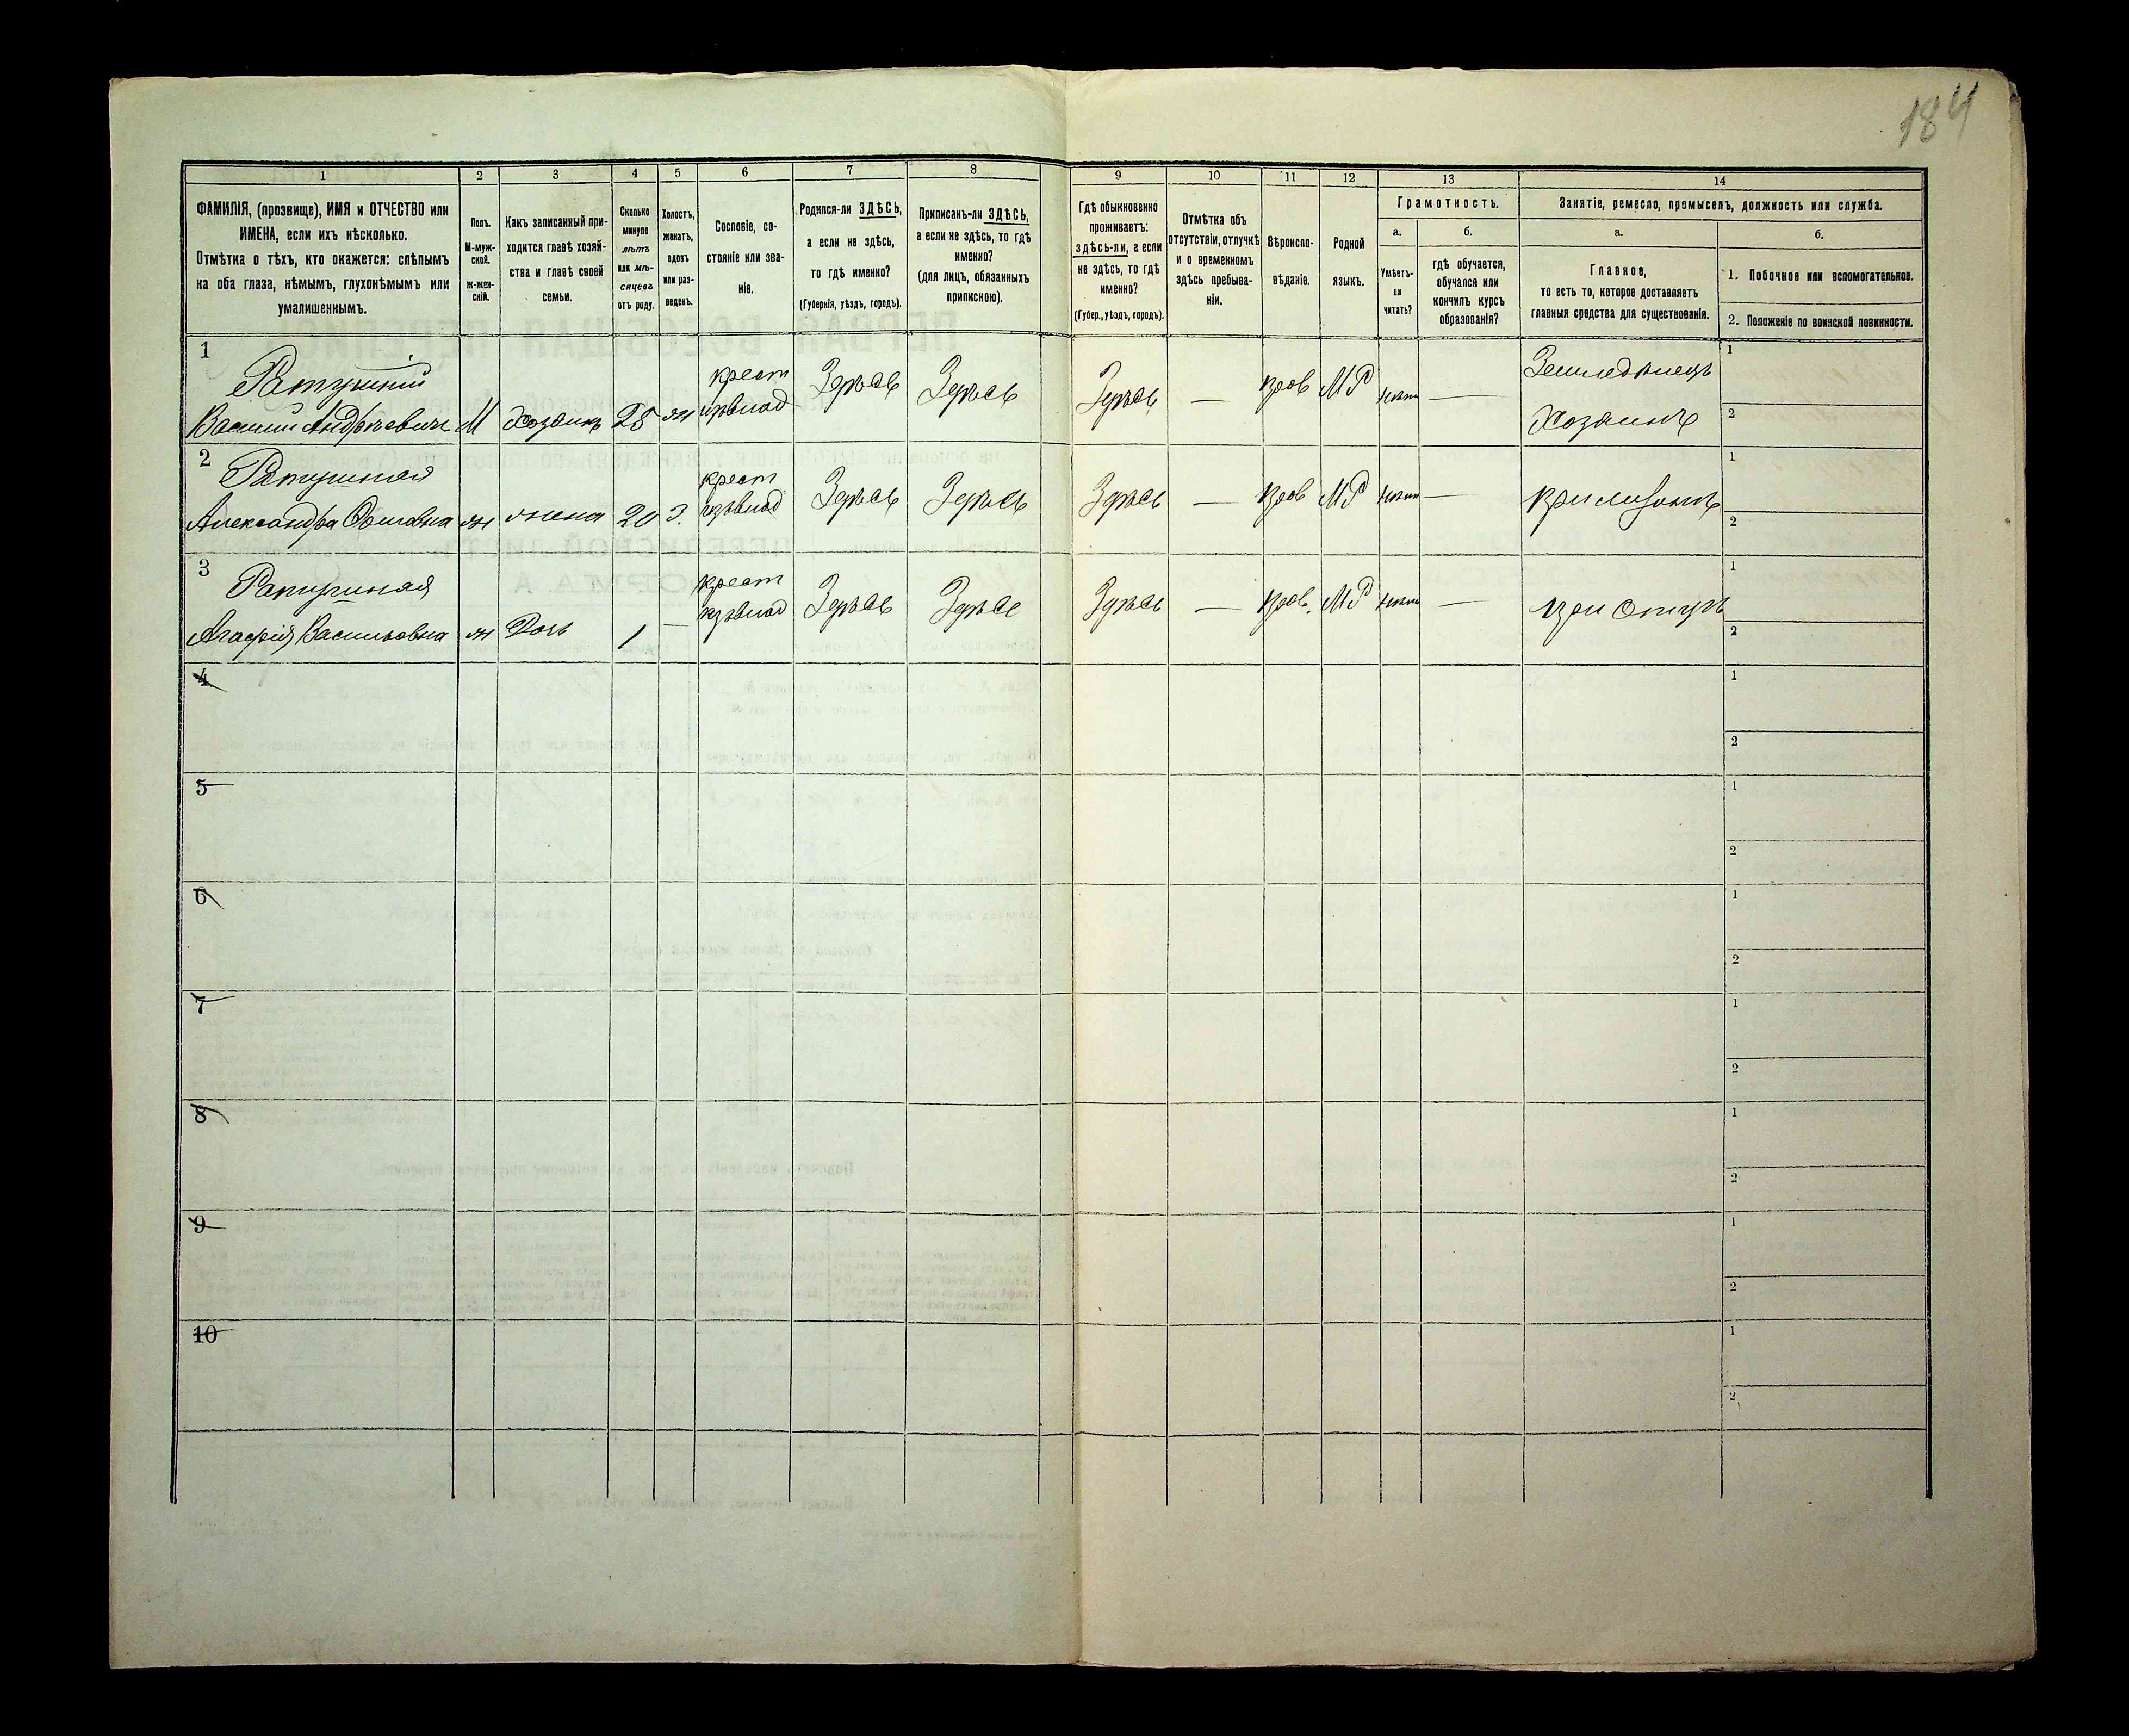 184
1 2 3 4 5 6 7 8 9 10 11 12 13 14
ФАМИЛІЯ, (прозвище), ИМЯ и ОТЧЕСТВО или
ИМЕНА, если ихъ нѣсколько.
Отмѣтка о тѣхъ, кто окажется: слѣпымъ
на оба глаза, нѣмымъ, глухонѣмымъ или
умалишеннымъ.
Полъ.
М-муж-
ской.
Ж-жен-
скій.
Какъ записанный при-
ходится главѣ хозяй-
ства и главѣ своей
семьи.
Сколько
минуло
лѣтъ
или мѣ-
сяцевъ
отъ роду.
Холостъ,
женатъ,
вдовъ
или раз-
веденъ.
Сословіе, со-
стояніе или зва-
ніе.
Родился-ли ЗДѢСЬ,
а если не здѣсь,
то гдѣ именно?
(Губернія, уѣздъ, городъ).
Приписанъ-ли ЗДѢСЬ,
а если не здѣсь, то гдѣ
именно?
(для лицъ, обязанныхъ
припискою).
Гдѣ обыкновенно
проживаетъ:
здѣсь-ли, а если
не здѣсь, то гдѣ
именно?
(Губер., уѣздъ, городъ).
Отмѣтка объ
отсутствіи, отлучкѣ
и о временномъ
здѣсь пребыва-
ніи.
Вѣроиспо-
вѣданіе.
Родной
языкъ.
Грамотность.
а.
Умѣетъ-
ли
читать?
б.
гдѣ обучается,
обучался или
кончилъ курсъ
образованія?
Занятіе, ремесло, промыселъ, должность или служба.
а.
Главное,
то есть то, которое доставляетъ
главныя средства для существованія.
б.
1. Побочное или вспомогательное.
2. Положеніе по воинской повинности.
1
Василий Андрѣевичъ М Хозяинъ 25 ж
крест
Здѣсь Здѣсь Здѣсь — МР нѣтъ —
Земледѣлецъ
Хозяинъ
1
2
2
Александра ж жена 20 З.
крест
Здѣсь Здѣсь Здѣсь — МР нѣтъ —
1
2
3
Агафія Васильовна ж Дочь 1 —
крест
Здѣсь Здѣсь Здѣсь — МР нѣтъ —
при отцѣ
1
2
4
1
2
5
1
2
6
1
2
7
1
2
8
1
2
9
1
2
10
1
2